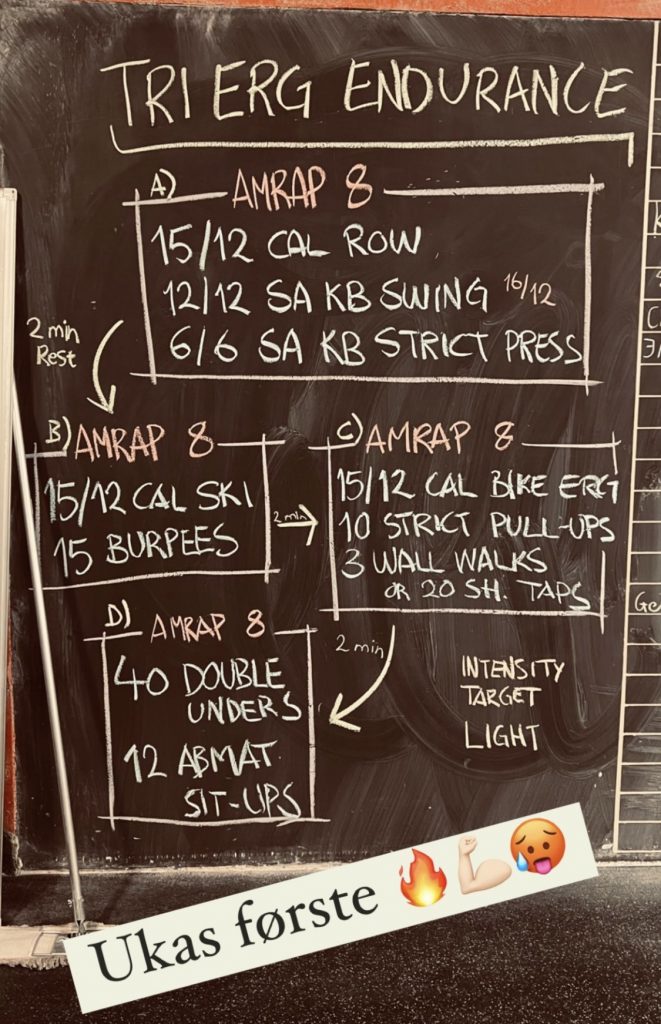 TRI ERG ENDURANCE
A) AMRAP 8
15/12 CAL ROW
12/12 SA KB SWING 16/12
6/6 SA KB STRICT PRESS
2 min
Rest
B) AMRAP 8
15/12 CAL SKI
15 BURPEES
2 min
C) AMRAP 8
15/12 CAL BIKE ERG
10 STRICT PULL-UPS
3 WALL WALKS
OR 20 SH. TAPS
2 min
D) AMRAP 8
40 DOUBLE
UNDERS
12 ABMAT
SIT-UPS
INTENSITY
TARGET
LIGHT
Ukas første 🔥💪🏻🥵